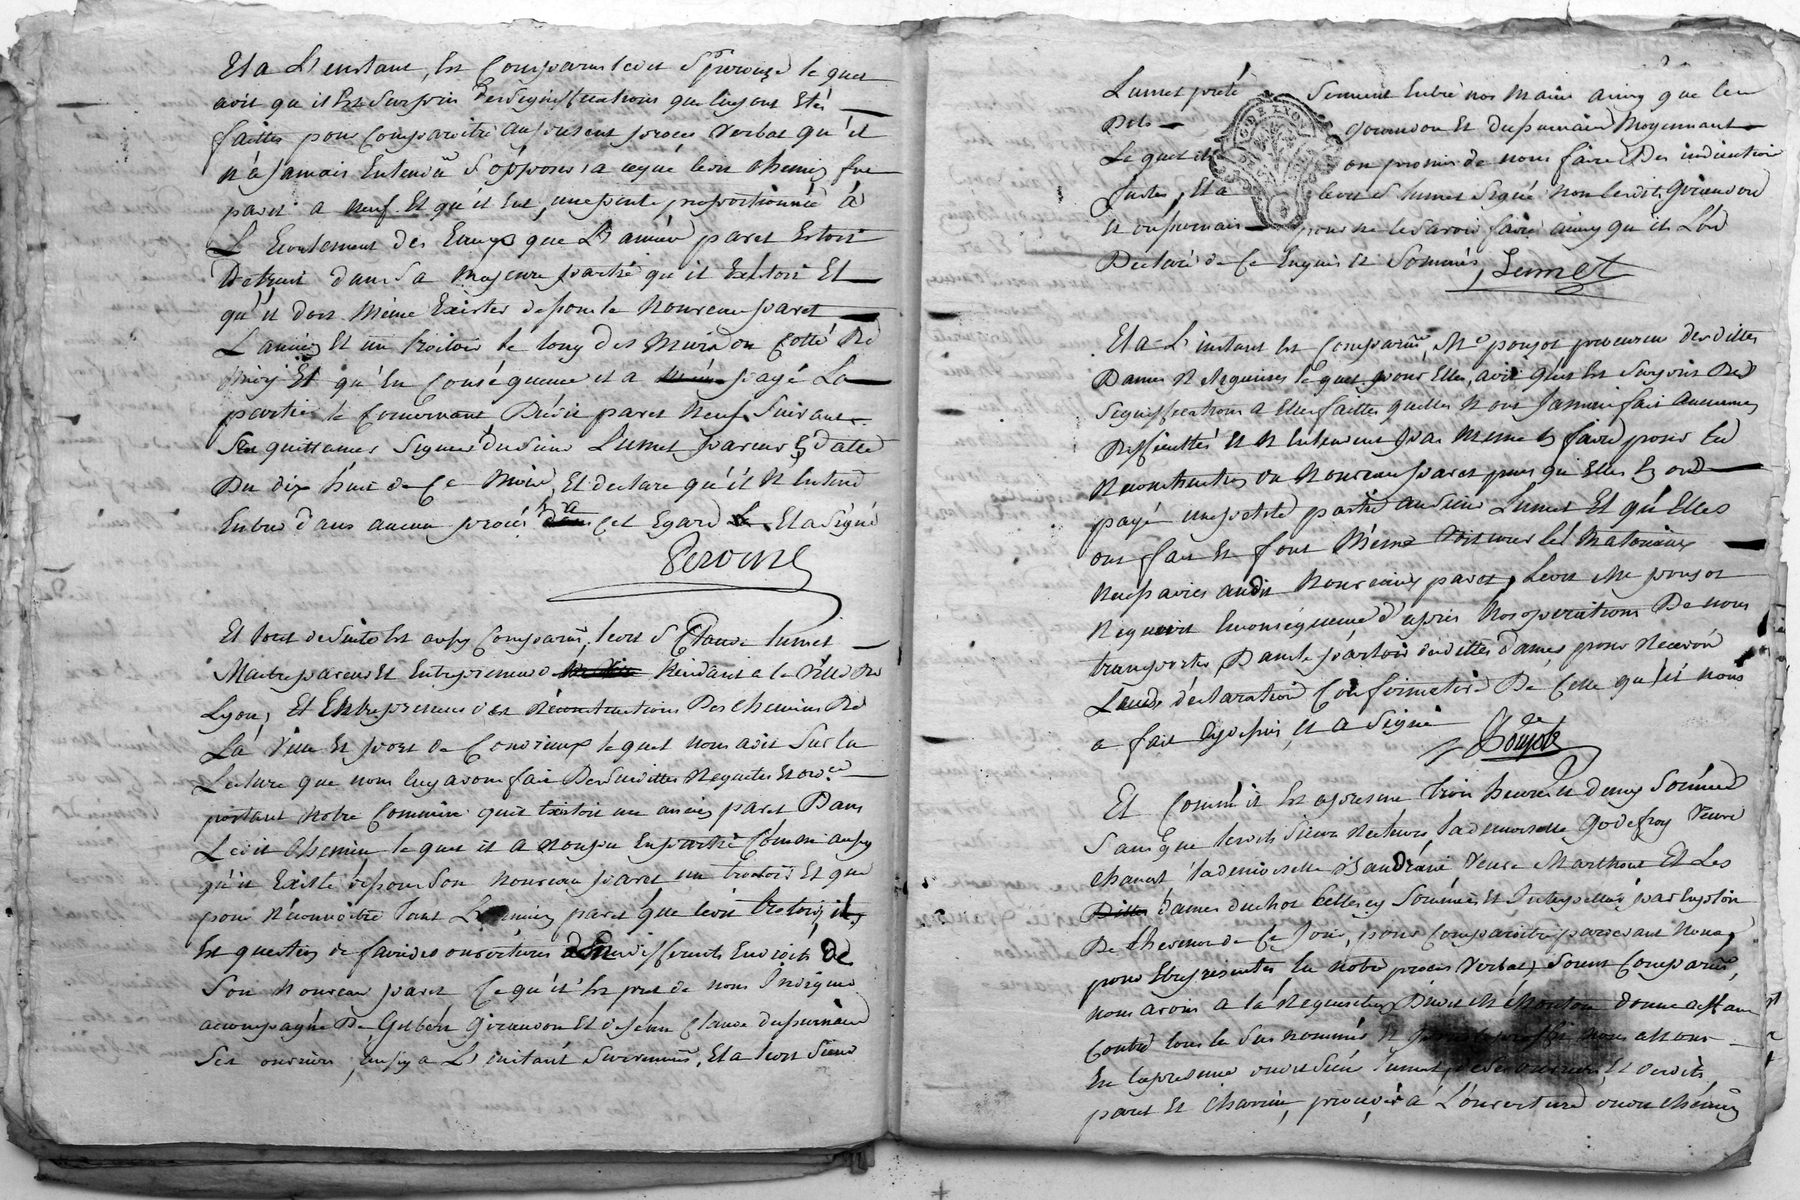 Et a L'instant, Est Comparus ledit S Peronne le quel
dit qu il Est Surpris des Significations que luy ont Etés
faittes pour Comparoitre au present proces Verbal qu'il
n'a Jamais Entendu S'opposer a ce que ledit Chemin fut
pavé a neuf Et qu'il Eut une pente proportionnée á
L'Ecoulement des Eaux que L'ancien pavet Estoit
Detruit dans Sa majeure partie qu'il Existoit Et
qu'il doit Même Exister dessous le Nouveau pavet
L'ancien Et un trotoir le long des Murs du Cotté De
Et qu'En Conséquence il a payé La
partie le Concernant Dudit pavet Neuf Suivant
quittance Signée du Sieur Lumet paveur En datte
Du dix huit de Ce Mois, Et declare qu'il N'Entend
Entrer dans aucun procés a Cet Egard Et a Signé
Peronne
Et tout de Suite Est aussy Comparus, ledit S Claude Lumet
Maitre paveur Et Entrepreneur Residant a la Ville De
Lyon, Et Entrepreneur des Réconstructions Des Chemins De
La Ville Et port de Condrieux le quel nous a dit Sur la
Lecture que nous luy avons fait Des Susdittes Requetes Et ord.ce
portant Notre Commission qu'il Existoit un ancien pavet Dans
Ledit Chemin le quel il a rompu En partie Comme aussy
qu'il Existe dessous Son nouveau pavet un trotoir Et que
pour Réconnoitre Tant L'ancien pavet que ledit trotoir, il
Est question de faire des ouvertures En differents Endroits de
Son Nouveau pavet Ce qu'il Est pret de nous Indiquer
accompagné De Gilbert Giraudon Et de Jean Claude Dupermain
Ses ouvriers, aussy a L'instant Survenus, Et a ledit Sieur
Lumet preté Serment Entre nos Mains ainsy que les
Dits Giraudon Et Dupermain Moyennant
Le quel ils ont promis de nous faire Des indication
Justes, Et a ledit S Lumet Signé non lesdits Giraudon
Et Dupermain pour ne le Savoir faire ainsy qu ils L'ont
Declaré de Ce Enquis Et Sommés, Lumet
Et a L'instant Est Comparus Me poujol procureur desdittes
Dames Religieuses le quel pour Elles, a dit qu'il Est Surpris Des
Significations a Elles faittes qu'elles N'ont Jamais fait aucunes
Difficultés Et N'Entendent pas Même En faire pour la
Reconstruction du Nouveau pavet puis qu'Elles En ont
payé une petite partie au Sieur Lumet Et qu'Elles
ont fait Et font Même Voiturer les Matériaux
Necessaires audit Nouveau pavet, Ledit Me poujol
Requiert En Conséquence d'après Nos operations De nous
transporter Dans le parloir desdittes dames pour Recevoir
Leurs déclarations Confirmative De Celle qu'il nous
a fait Cy dessus, Et a Signé Poujol
Et Comme il Est a present Trois heures Et demy Sonnées
Sans que lesdits Sieurs Recteurs, la demoiselle Godefroy Veuve
Chanut la demoiselle Veuve Marthout Et les
dames Duchol Celles cy Sommées Et Interpellées par Exploit
De Chermon de Ce Jour, pour Comparoitre pardevant Nous,
pour Etre presentes En notre procés Verbal, Soient Comparus,
nous avons a la Requisition Dudit Me donné deffaut
Contre tous le Sus nommés Et nous allons
En la presence dudit Sieur Lumet, de Ses ouvriers, Et desdits
procéder á L'ouverture dudit Chemin